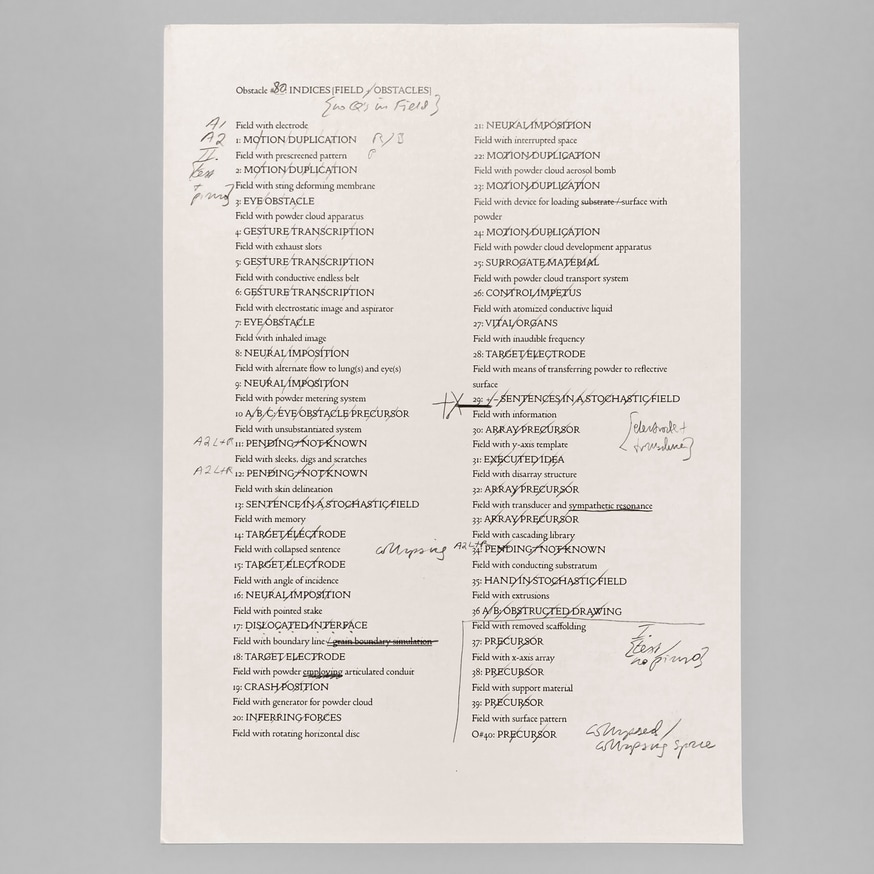 Obstacle #80. INDICES [FIELD / OBSTACLES]
{no Q's in Field}
A1 Field with electrode
A2 1: MOTION DUPLICATION
II. Field with prescreened pattern
2: MOTION DUPLICATION
Field with sting deforming membrane
3: EYE OBSTACLE
Field with powder cloud apparatus
4: GESTURE TRANSCRIPTION
Field with exhaust slots
5: GESTURE TRANSCRIPTION
Field with conductive endless belt
6: GESTURE TRANSCRIPTION
Field with electrostatic image and aspirator
7: EYE OBSTACLE
Field with inhaled image
8: NEURAL IMPOSITION
Field with alternate flow to lung(s) and eye(s)
9: NEURAL IMPOSITION
Field with powder metering system
10 A/B/C/EYE OBSTACLE PRECURSOR
Field with unsubstantiated system
A2 L+R 11: PENDING+NOT KNOWN
Field with sleeks, digs and scratches
A2 L+R 12: PENDING+NOT KNOWN
Field with skin delineation
13: SENTENCE IN A STOCHASTIC FIELD
Field with memory
14: TARGET/ELECTRODE
Field with collapsed sentence
collapsing
15: TARGET/ELECTRODE
Field with angle of incidence
16: NEURAL IMPOSITION
Field with pointed stake
17: DISLOCATED INTERFACE
Field with boundary line / grain boundary simulation
18: TARGET ELECTRODE
Field with powder employing articulated conduit
19: CRASH POSITION
Field with generator for powder cloud
20: INFERRING FORCES
Field with rotating horizontal disc
21: NEURAL IMPOSITION
Field with interrupted space
22: MOTION DUPLICATION
Field with powder cloud aerosol bomb
23: MOTION DUPLICATION
Field with device for loading substrate / surface with
powder
24: MOTION DUPLICATION
Field with powder cloud development apparatus
25: SURROGATE MATERIAL
Field with powder cloud transport system
26: CONTROL IMPETUS
Field with atomized conductive liquid
27: VITAL ORGANS
Field with inaudible frequency
28: TARGET/ELECTRODE
Field with means of transferring powder to reflective
surface
29: +/– SENTENCES IN A STOCHASTIC FIELD
Field with information
30: ARRAY PRECURSOR
[electrode +
Field with y-axis template
31: EXECUTED IDEA
Field with disarray structure
32: ARRAY PRECURSOR
Field with transducer and sympathetic resonance
33: ARRAY PRECURSOR
Field with cascading library
A2 L+R 34: PENDING+NOT KNOWN
Field with conducting substratum
35: HAND IN STOCHASTIC FIELD
Field with extrusions
36 A/B: OBSTRUCTED DRAWING
Field with removed scaffolding
I.
37: PRECURSOR
Field with x-axis array
38: PRECURSOR
Field with support material
39: PRECURSOR
Field with surface pattern
O#40: PRECURSOR
collapsed /
collapsing space